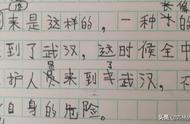 来是这样的，一种
到了武汉，这时候全中
护人员来到武汉，不
自身的危险。